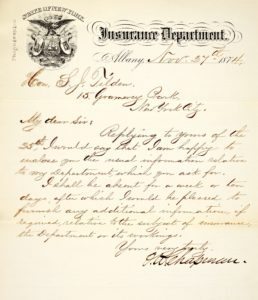 STATE OF NEW YORK.
Insurance Department.
Albany, Nov. 27th 1874
Hon. S. J. Tilden,
15 Gramercy Park,
New York City.
My dear Sir:
Replying to yours of the
25th I would say that I am happy to
enclose you the usual information relative
to my department which you ask for.
I shall be absent for a week or ten
days, after which I would be pleased to
furnish any additional information, if
required, relative to the subject of insurance,
the Department or its workings.
Yours very truly,
Chapman.